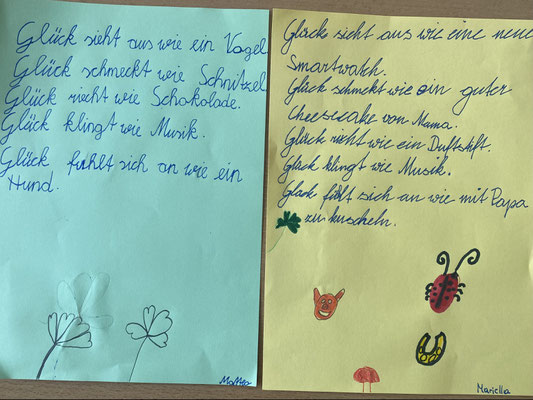 Glück sieht aus wie ein Vogel
Glück schmeckt wie Schnitzel
Glück riecht wie Schokolade.
Glück klingt wie Musik.
Glück fühlt sich an wie ein
Hund.
Glück sieht aus wie eine neue
Smartwatch.
Glück schmckt wie ein guter
Cheesecake von Mama.
Glück richt wie ein Duftstift.
Glück klingt wie Musik.
Glück fühlt sich an wie mit Papa
zu kuscheln.
Mariella